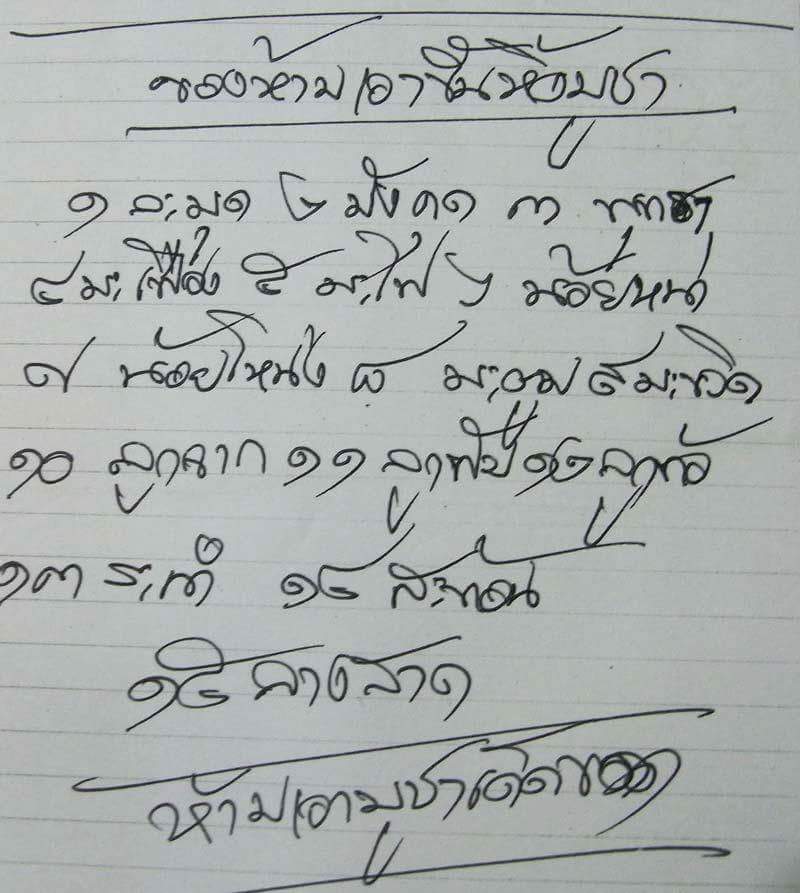 ของห้ามเอาขึ้นหิ้งบูชา
๑ ละมุด ๒ มังคุด ๓ พุทรา
๔ มะเฟือง ๕ มะไฟ ๖ น้อยหน่า
๗ น้อยโหน่ง ๘ มะงุม ๙ มะขวิด
๑๐ ลูกจาก ๑๑ ลูกพลับ ๑๒ ลูกท้อ
๑๓ ระกำ ๑๔ กระท้อน
๑๕ ลางสาด
ห้ามเอาบูชาเด็ดขาด